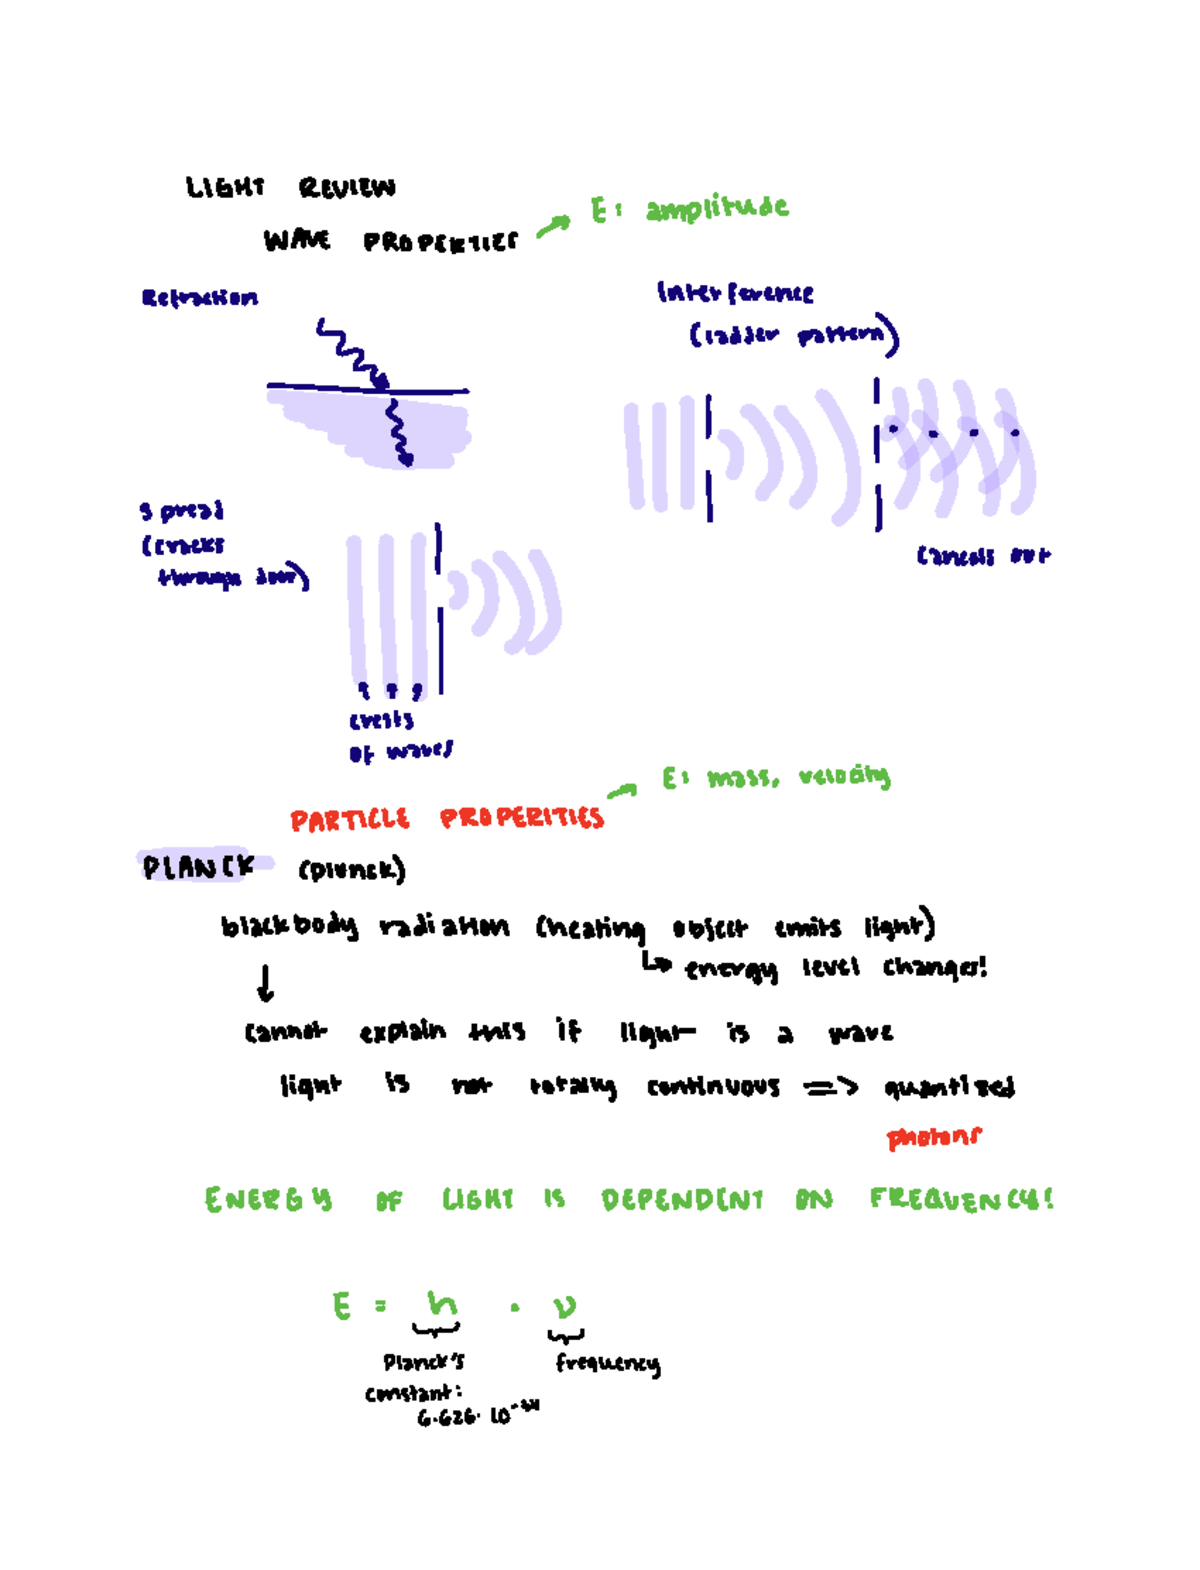 LIGHT REVIEW
WAVE PROPERTIES
E: amplitude
Refraction
Interference
(ladder pattern)
Spread
(cracks
through door)
cancels out
crests
of waves
E: mass, velocity
PARTICLE PROPERITIES
PLANCK (plunck)
blackbody radiation (heating object emits light)
energy level changes!
cannot explain this if light is a wave
light is not totally continuous => quantized
photons
ENERGY OF LIGHT IS DEPENDENT ON FREQUENCY!
E = h · ν
Planck's
constant:
6.626· 10⁻³⁴
frequency